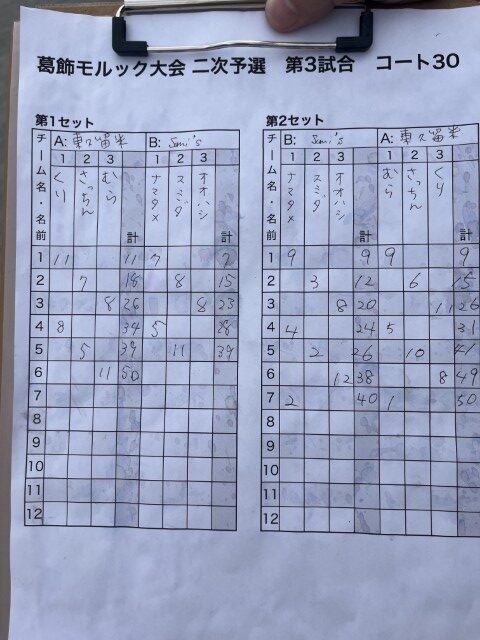 葛飾モルック大会 二次予選 第3試合 コート30
第1セット
チーム名・名前 A: 東久留米 B: Sami's
1 2 3 1 2 3
くり さっちん むら 計 ナマタメ スミダ オオハシ 計
1 11 11 7 7
2 7 18 8 15
3 8 26 8 23
4 8 34 5 28
5 5 39 11 39
6 11 50
7
8
9
10
11
12
第2セット
チーム名・名前 B: Sami's A: 東久留米
1 2 3 1 2 3
ナマタメ スミダ オオハシ 計 むら さっちん くり 計
1 9 9 9 9
2 3 12 6 15
3 8 20 11 26
4 4 24 5 31
5 2 26 10 41
6 12 38 8 49
7 2 40 1 50
8
9
10
11
12